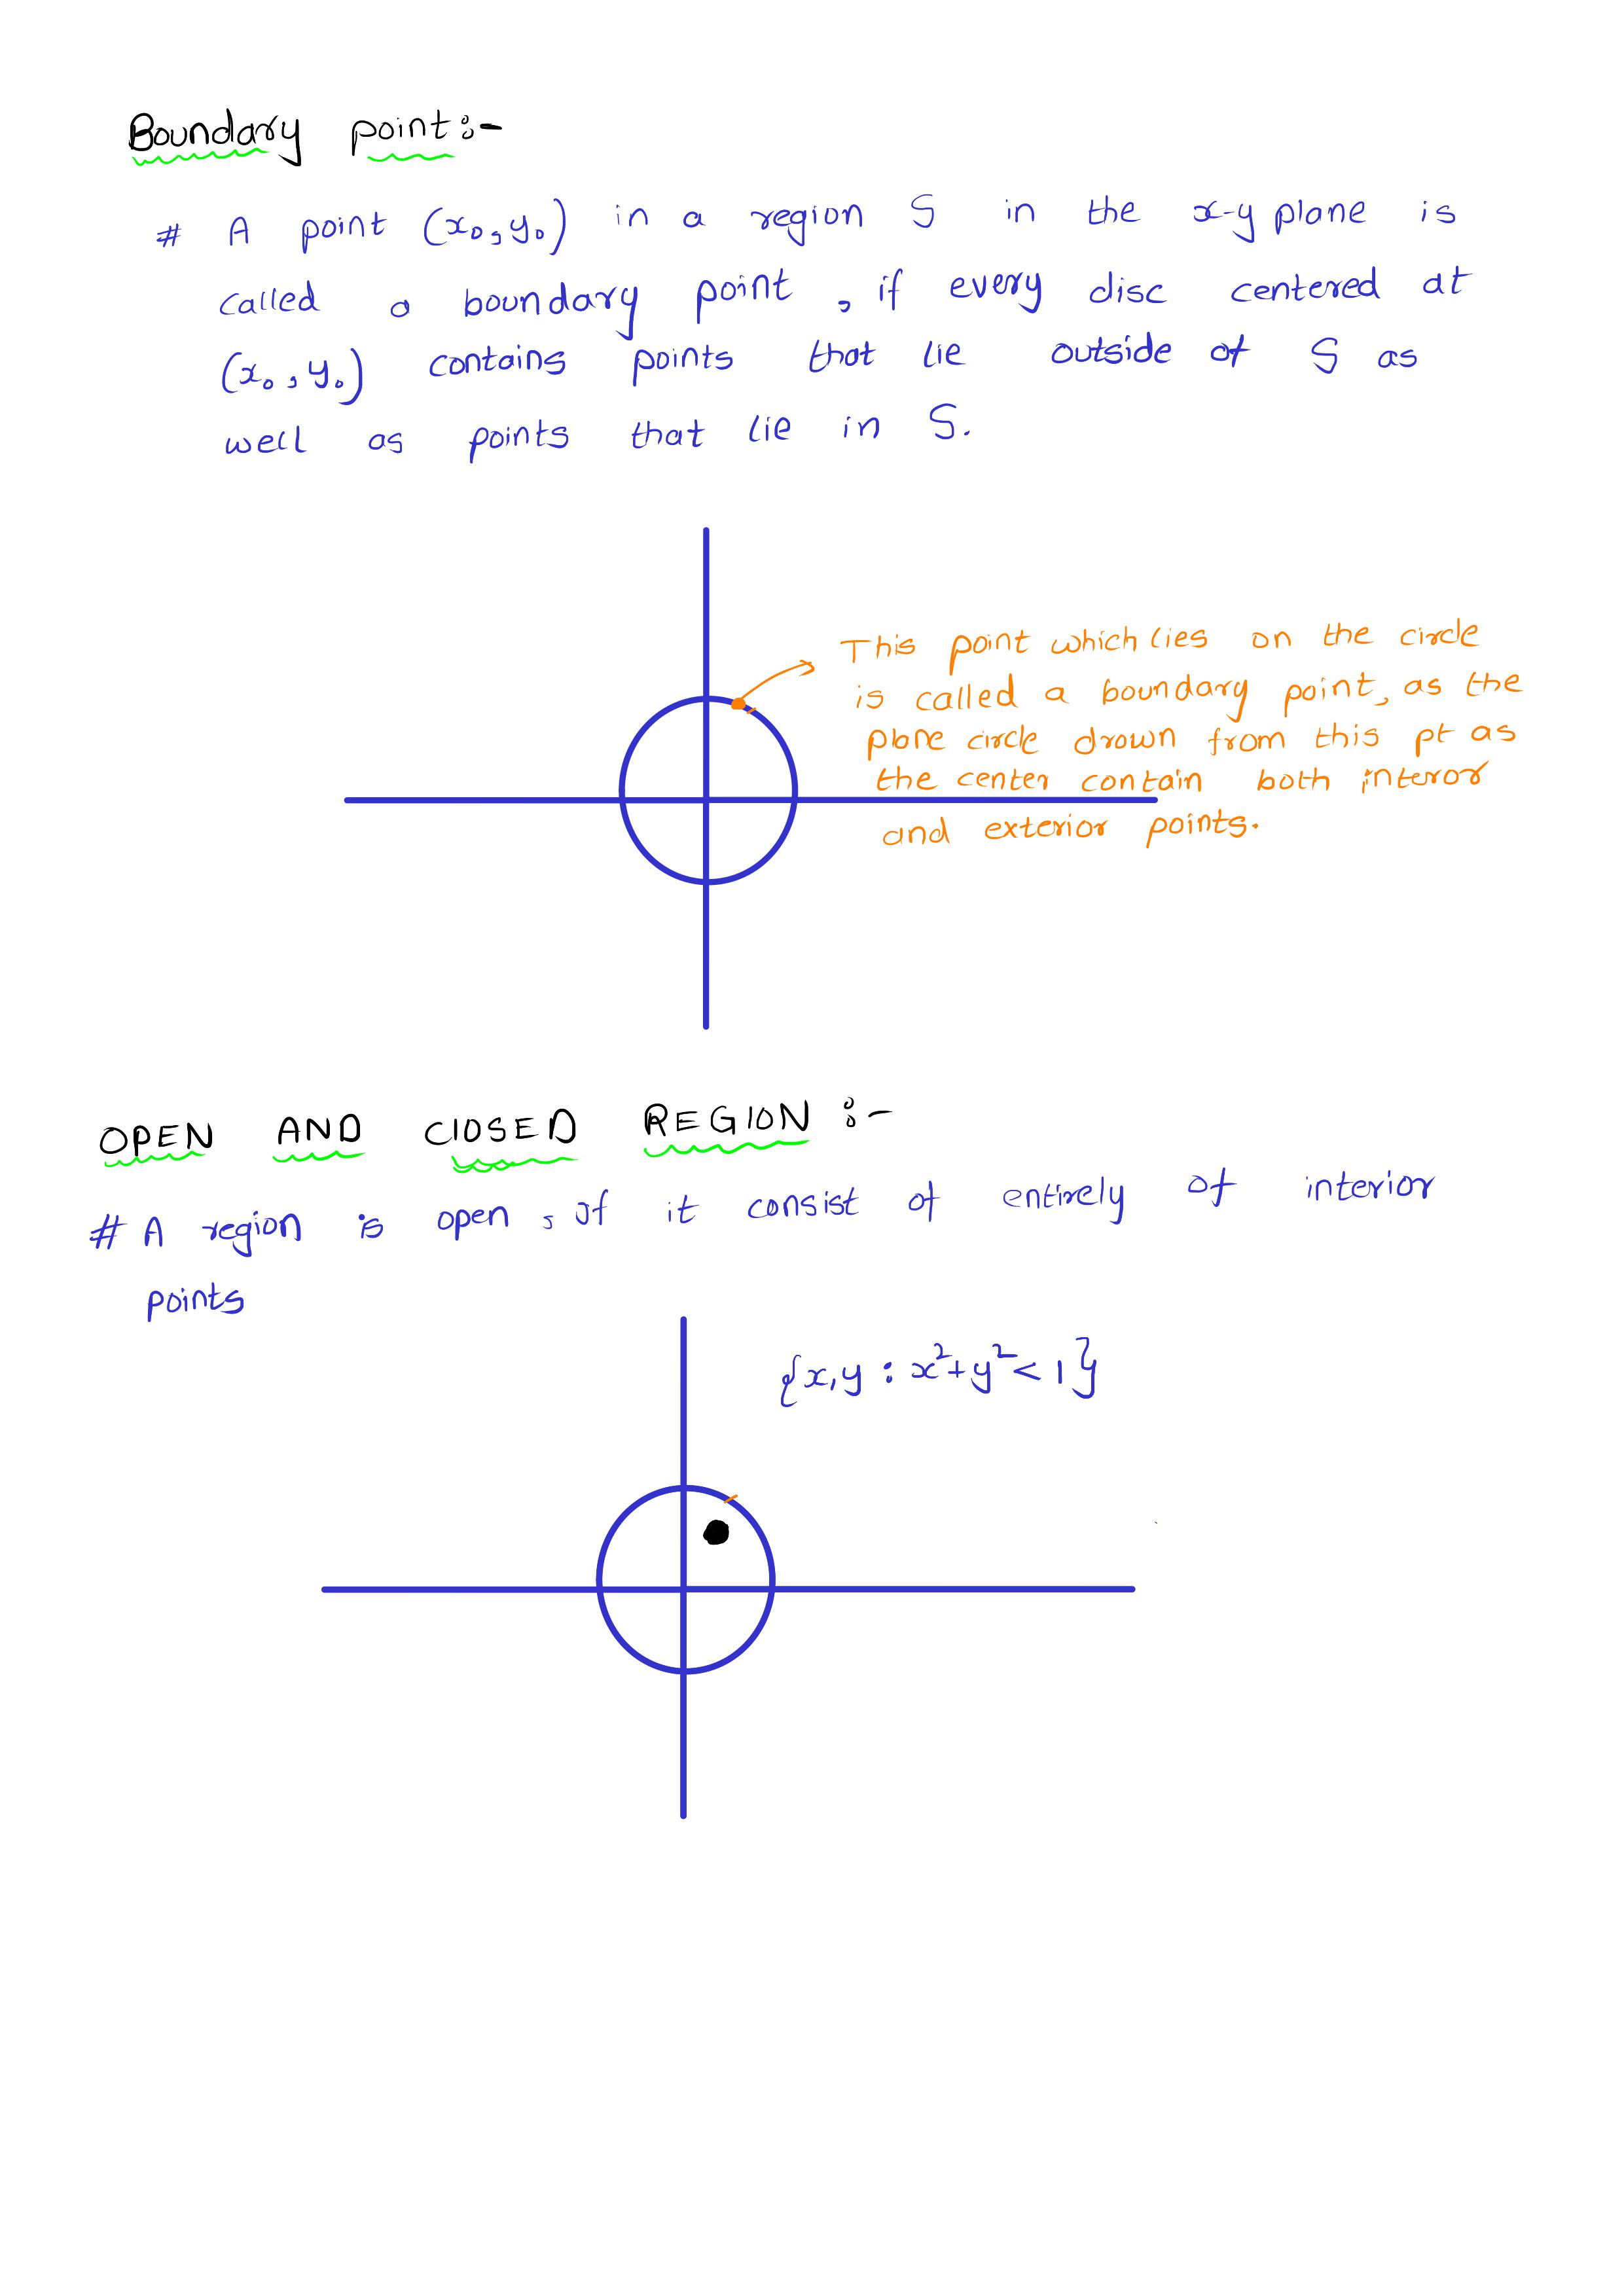 Boundary point:-
# A point (x₀,y₀) in a region S in the x-y plane is
called a boundary point, if every disc centered at
(x₀,y₀) contains points that lie outside of S as
well as points that lie in S.
This point which lies on the circle
is called a boundary point, as the
plane circle drown from this pt as
the center contain both interor
and exterior points.
OPEN AND ClOSED REGION :-
# A region is open, if it consist of entirely of interior
points
{x,y : x²+y²<1}